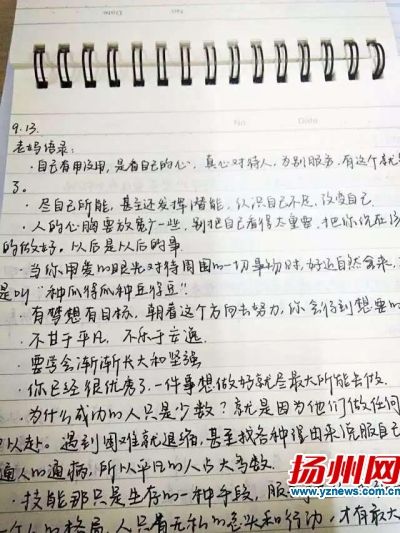 Date
No
No
Date
9.13.
老妈语录：
·自己有用没用，是看自己的心，真心对待人，为别服务，有这个就是
了。
·尽自己所能，甚至还发挥潜能，认识自己不足，改变自己
·人的心胸要放宽一些，别把自己看得太重要，把你现在该
的做好。以后是以后的事
·当你用爱的眼光对待周围的一切事物时，好运自然会来，
是叫“种瓜得瓜种豆得豆”
·有梦想有目标，朝着这个方向去努力，你会得到想要的
·不甘于平凡，不乐于安逸
·要学会渐渐长大和坚强
·你已经很优秀了，一件事想做好就尽最大所能去做.
·为什么成功的人只是少数？就是因为他们做任何
以赴。遇到困难就退缩，甚至找各种理由来说服自己
通人的通病，所以平凡的人占大多数.
·技能那只是生存的一种手段，服
个人的格局，人只有无私的念头和行动，才有最大
扬州网
www.yznews.com.cn